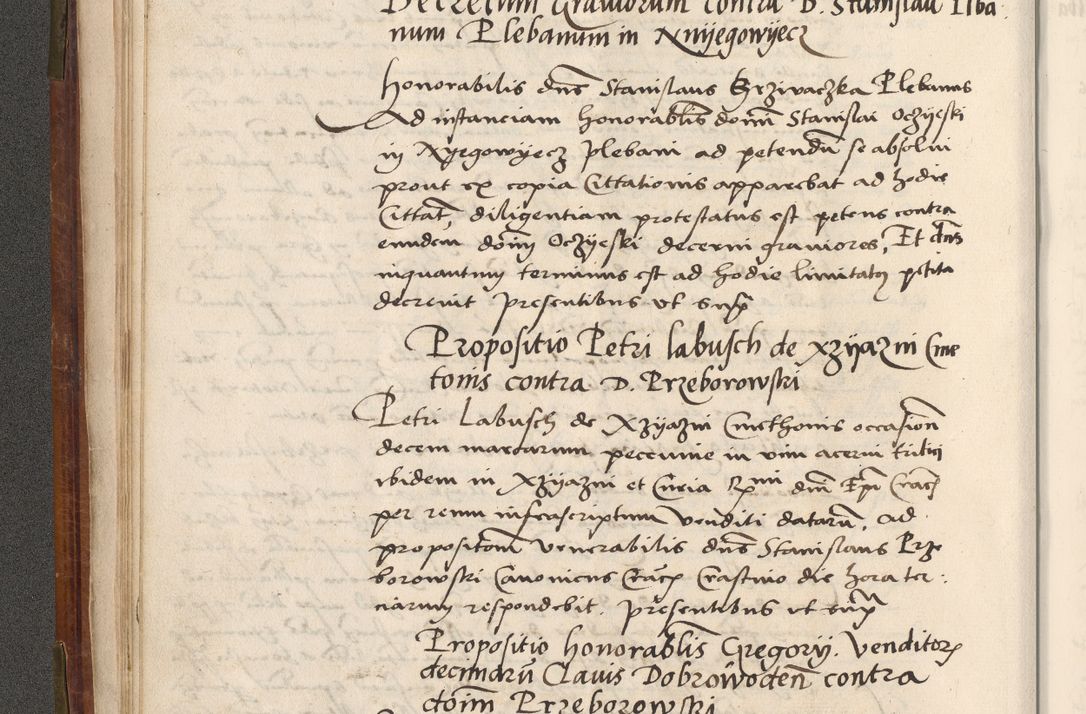 Decretum Graviorum contra D. Stanislaū Plba
num Plebanum in Xnyegowyecz
Honorabilis dns Stanislaus Grziwaczka Plebanus
Ad instanciam honorablis domi Stanislai Oczijeski
in Xyegowyecz plebani ad petendū se absolui
prout ex copia Cittationis apparebat ad hodie
Cittat, diligentiam protestatus est petens contra
eundem dōm Oczijeski decerni graviores, Et dns
inquantum terminus est ad hodie limitatꝫ petita
decrevit presentibus ut supra
Propositio Petri labusch de Xzyazni Cme
tonis contra D. Przeborowski
Petri Labusch de Xzyazni Cmethonis occasion
decem marcarum pecunie in vim acervi tritici
ibidem in Xzyazni et Curia Rmi dni Epi Crac
per eum infrascriptum venditi datarū, ad
propositom venerabilis dns Stanislaus Prze
borowski Canonicus Crac Crastino die hora ter:
ciarum respondebit. presentibus ut supra
Propositio honorablis Gregorij. venditorꝫ
decimarū Clavis Dobrowoden contra
doim Przeborowski